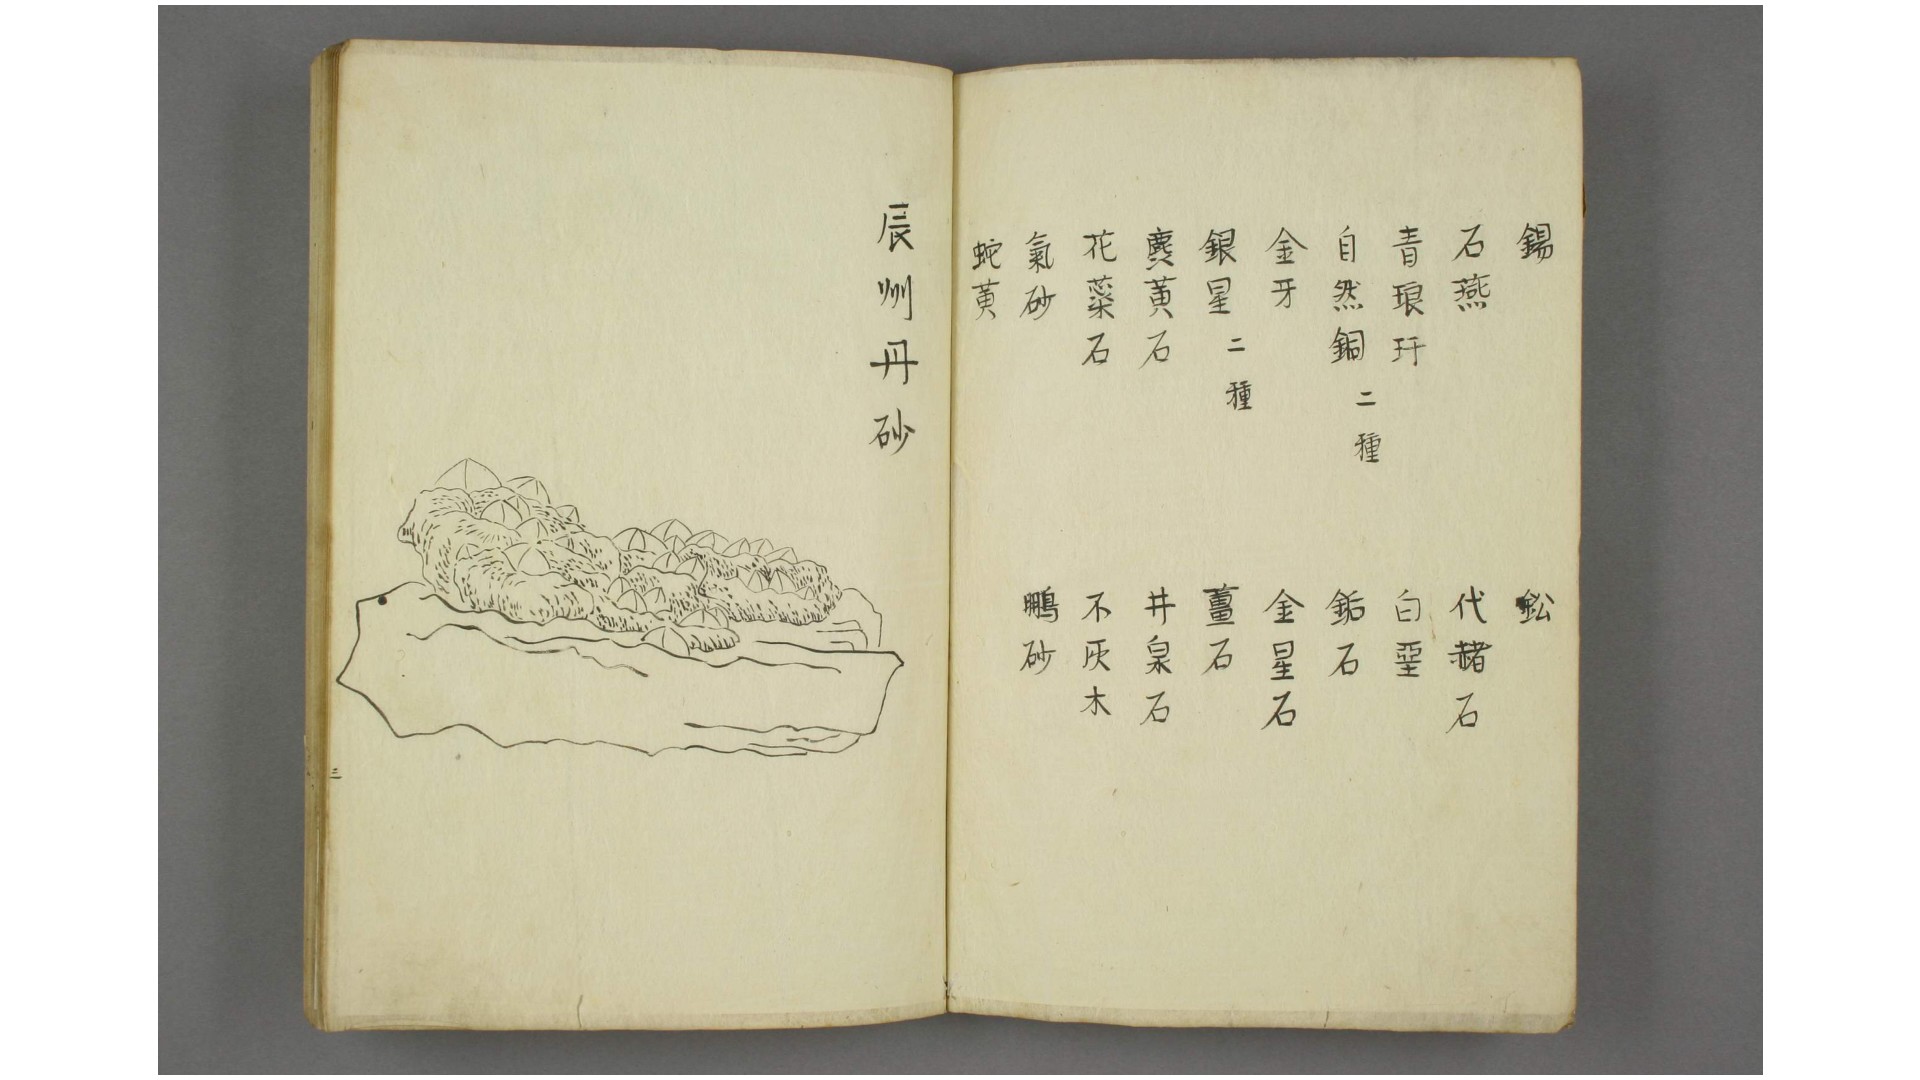 錫　鈆
石燕　代赭石
青琅玕　白堊
自然銅二種　石
金牙　金星石
銀星二種　薑石
黃石　井泉石
花蘂石　不灰木
氣砂　鵬砂
蛇黃
辰州丹砂
三